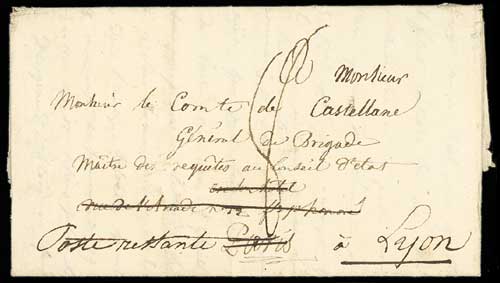 Monsieur
Monsieur le Comte de Castellane
Général de Brigade
Maître des requêtes au Conseil d'état
en son hôtel
rue de
Poste restante Paris à Lyon